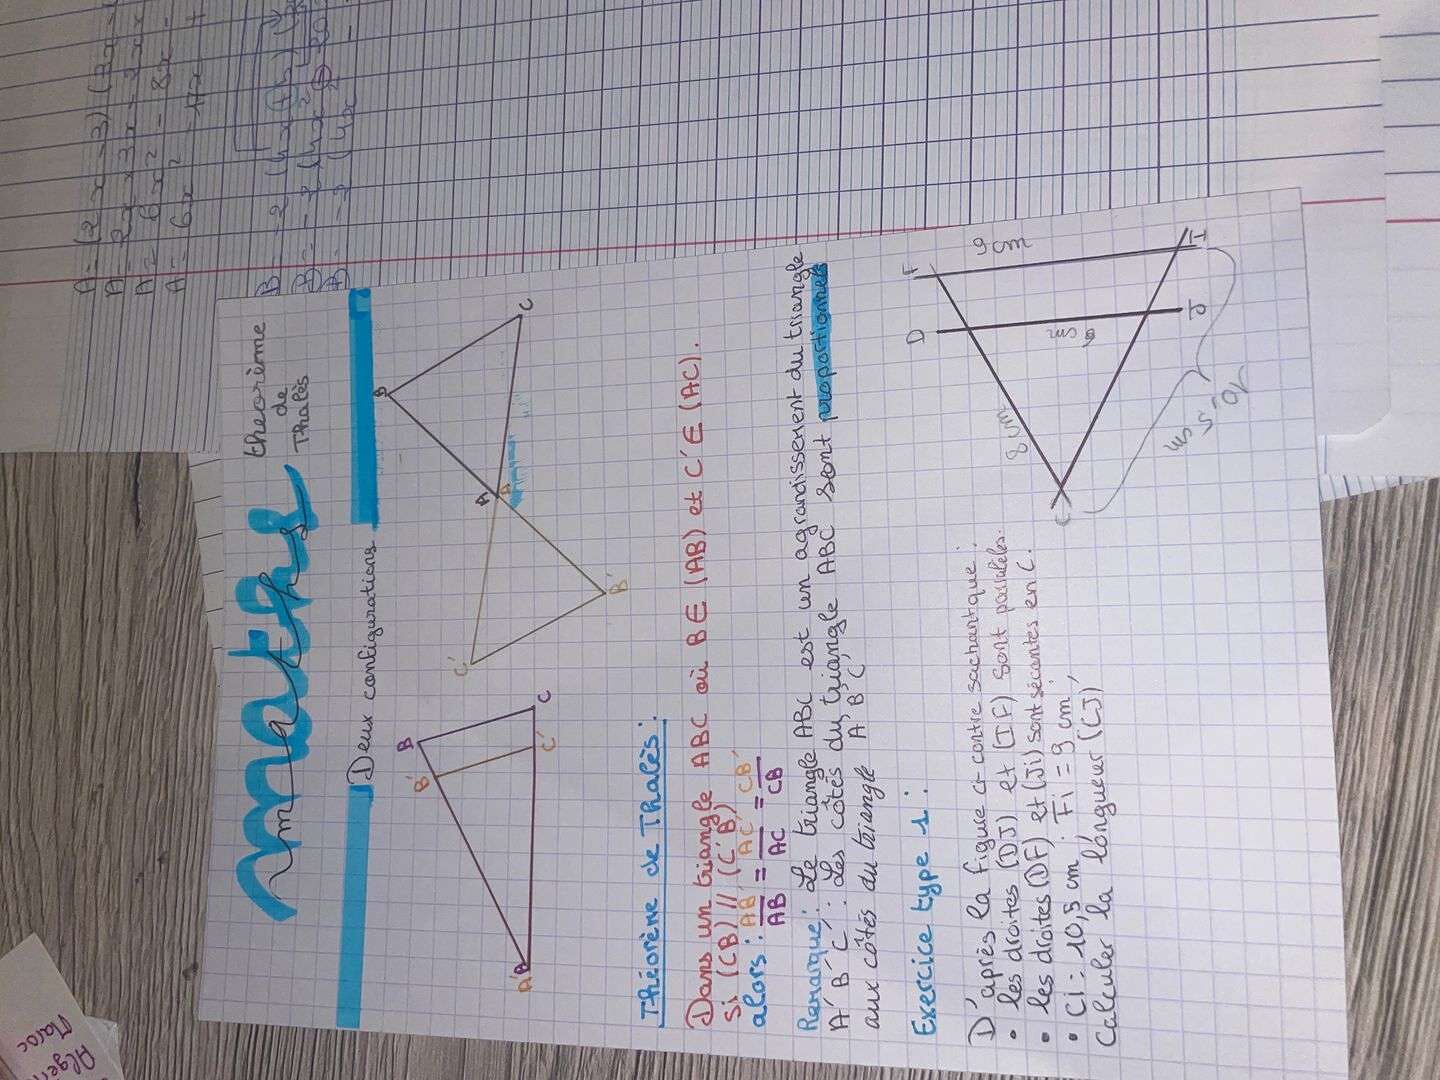 maths
theorème
de
Thalès
Deux configurations
B
B'
C
C'
A'
B
A
A
C
C'
B'
Théorème de Thalès:
Dans un triangle ABC où B ∈ (AB) et C' ∈ (AC).
Si (CB) // (C'B')
alors : AB'/AB = AC'/AC = CB'/CB
Remarque: Le triangle ABC est un agrandissement du triangle
A'B'C'. Les côtés du triangle ABC sont proportionnels
aux côtés du triangle A'B'C'
Exercice type 1:
D'après la figure ci-contre sachant que:
• les droites (DJ) et (IF) sont parallèles.
• les droites (DF) et (Ji) sont sécantes en C.
• Ci: 10,5 cm. Fi = 9 cm
Calculer la longueur (CJ)
F
9 cm
I
D
J
6 cm
8 cm
C
10,5 cm
A = (2x - 3)
A = 2x × 3x
A = 6x² - 8x
A = 6x² - 17x
Alger
Maroc